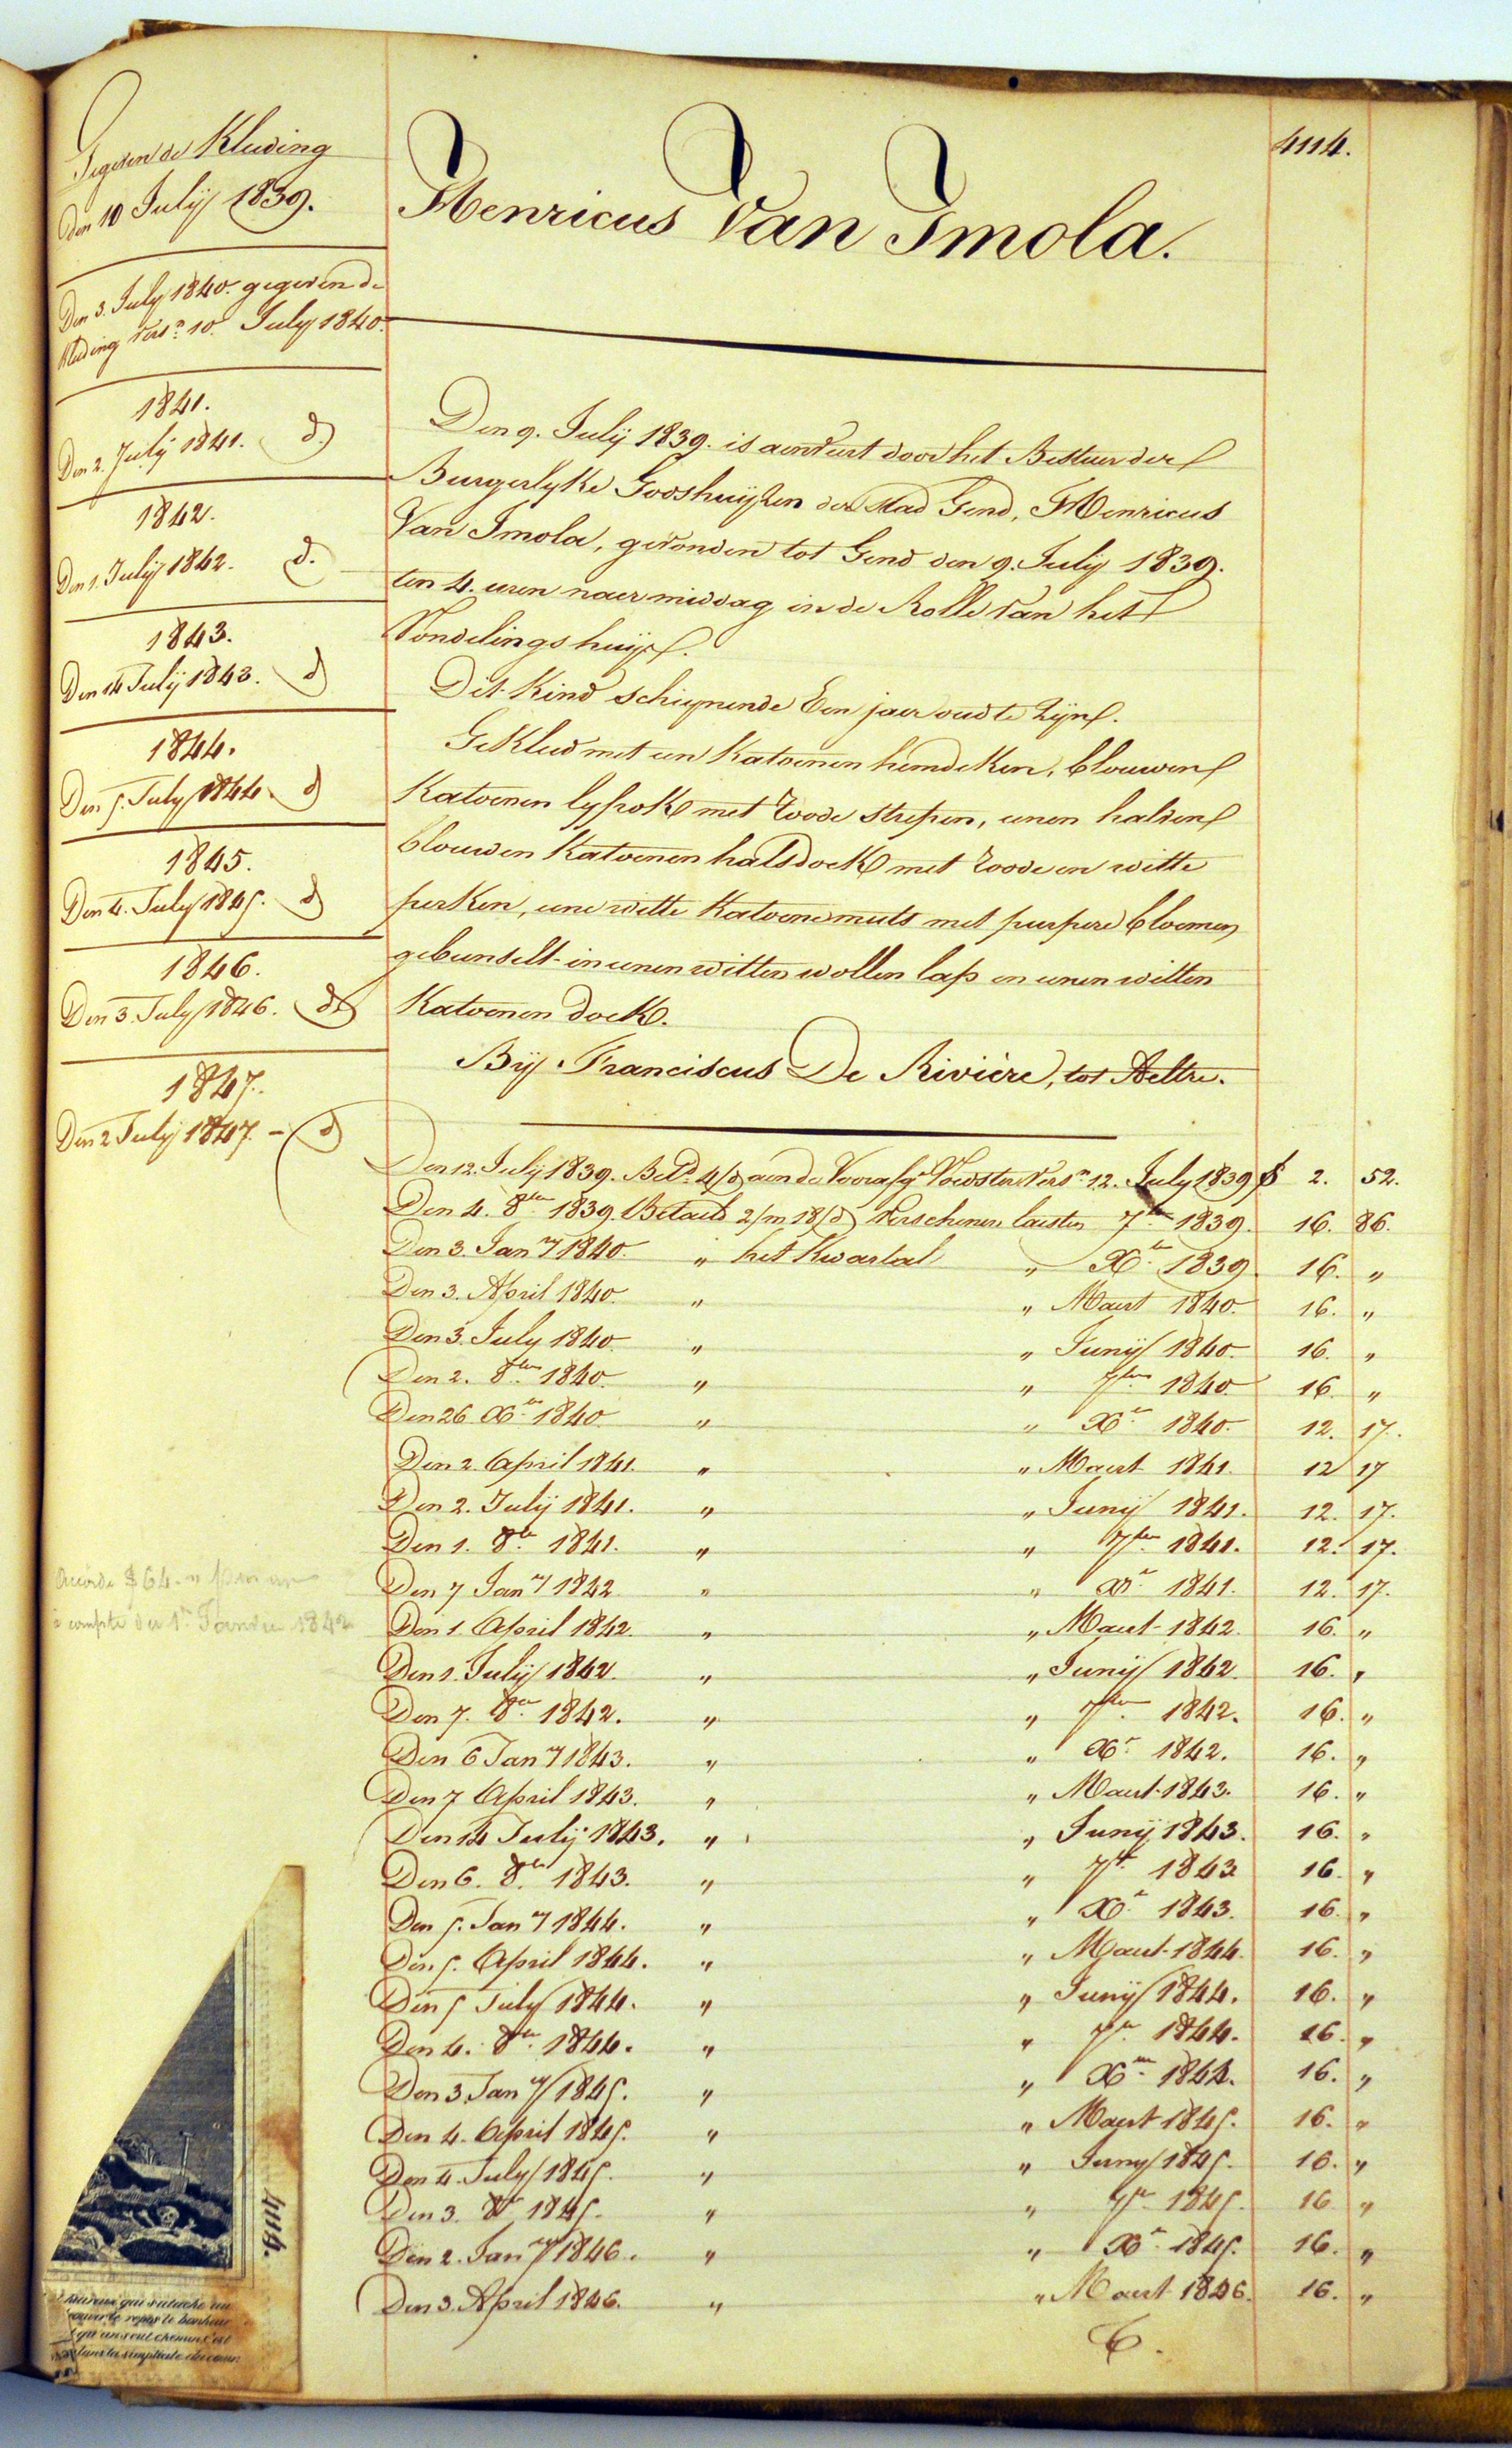 4114.
Gegeven de Kleding
den 10 July 1839.
Den 3. July 1840. gegeven de
Kleding vers.n 10. July 1840.
1841.
Den 2. July 1841. d.o
1842.
Den 1. July 1842. d.o
1843.
Den 14 July 1843. d.o
1844.
Den 5. July 1844. d.o
1845.
Den 4. July 1845. d.o
1846.
Den 3. July 1846. d.o
1847.
Den 2 July 1847. - d.o
Accordé 64. " par an
à compter du 1.er Janvier 1842
Henricus Van Imola.
Den 9. July 1839. is aenveirt door het Bestuer der
Burgerlyke Godshuyzen der Stad Gend, Henricus
Van Imola, gevonden tot Gend den 9. July 1839.
ten 4. uren naermiddag in de Rolle van het
Vondelingshuys.
Dit Kind schynende Een jaer oud te zyn.
Gekleed met een Katoenen hemdeken, blouwen
Katoenen lyfrok met roode strepen, eenen halven
blouwen Katoenen halsdoek met roode en witte
perken, eene witte Katoene muts met purpere bloemen
gebunselt in eenen witten wollen lap en eenen witten
Katoenen doek.
By Franciscus De Rivière, tot Aeltre.
Den 12. July 1839. Bet.d 4/d aen de Vooraf.ge Voedster vers.n 12. July 1839 2. 52.
Den 4. 8.ber 1839. Betaeld 2/m 18/d verschenen laesten 7.ber 1839. 16. 86.
Den 3. Jan.ry 1840. " het Kwartael " X.ber 1839. 16. "
Den 3. April 1840. " " Maert 1840. 16. "
Den 3. July 1840. " " Juny 1840. 16. "
Den 2. 8.ber 1840. " " 7.ber 1840. 16. "
Den 26 X.ber 1840. " " X.er 1840. 12. 17.
Den 2. April 1841. " " Maert 1841. 12 17
Den 2. July 1841. " " Juny 1841. 12. 17.
Den 1. 8.er 1841. " " 7.ber 1841. 12. 17.
Den 7 Jan.ry 1842 " " X.r 1841. 12. 17.
Den 1. April 1842. " " Maert 1842. 16. "
Den 1. July 1842. " " Juny 1842. 16. "
Den 7. 8.er 1842. " " 7.ber 1842. 16. "
Den 6 Jan.ry 1843. " " X.r 1842. 16. "
Den 7 April 1843. " " Maert 1843. 16. "
Den 14 July 1843. " " Juny 1843. 16. "
Den 6. 8.er 1843. " " 7.er 1843 16. "
Den 5. Jan.ry 1844. " " X.r 1843. 16. "
Den 5. April 1844. " " Maert 1844. 16. "
Den 5 July 1844. " " Juny 1844. 16. "
Den 4. 8.er 1844. " " 7.er 1844. 16. "
Den 3. Jan.ry 1845. " " X.er 1844. 16. "
Den 4. April 1845. " " Maert 1845. 16. "
Den 4. July 1845. " " Juny 1845. 16. "
Den 3. 8.er 1845. " " 7.er 1845. 16 "
Den 2. Jan.ry 1846. " " X.r 1845. 16. "
Den 3. April 1846. " " Maert 1846. 16. "
qui s'attache au
le repos le bonheur
qu'un seul chemin c'est
dans la simplicité du cœur